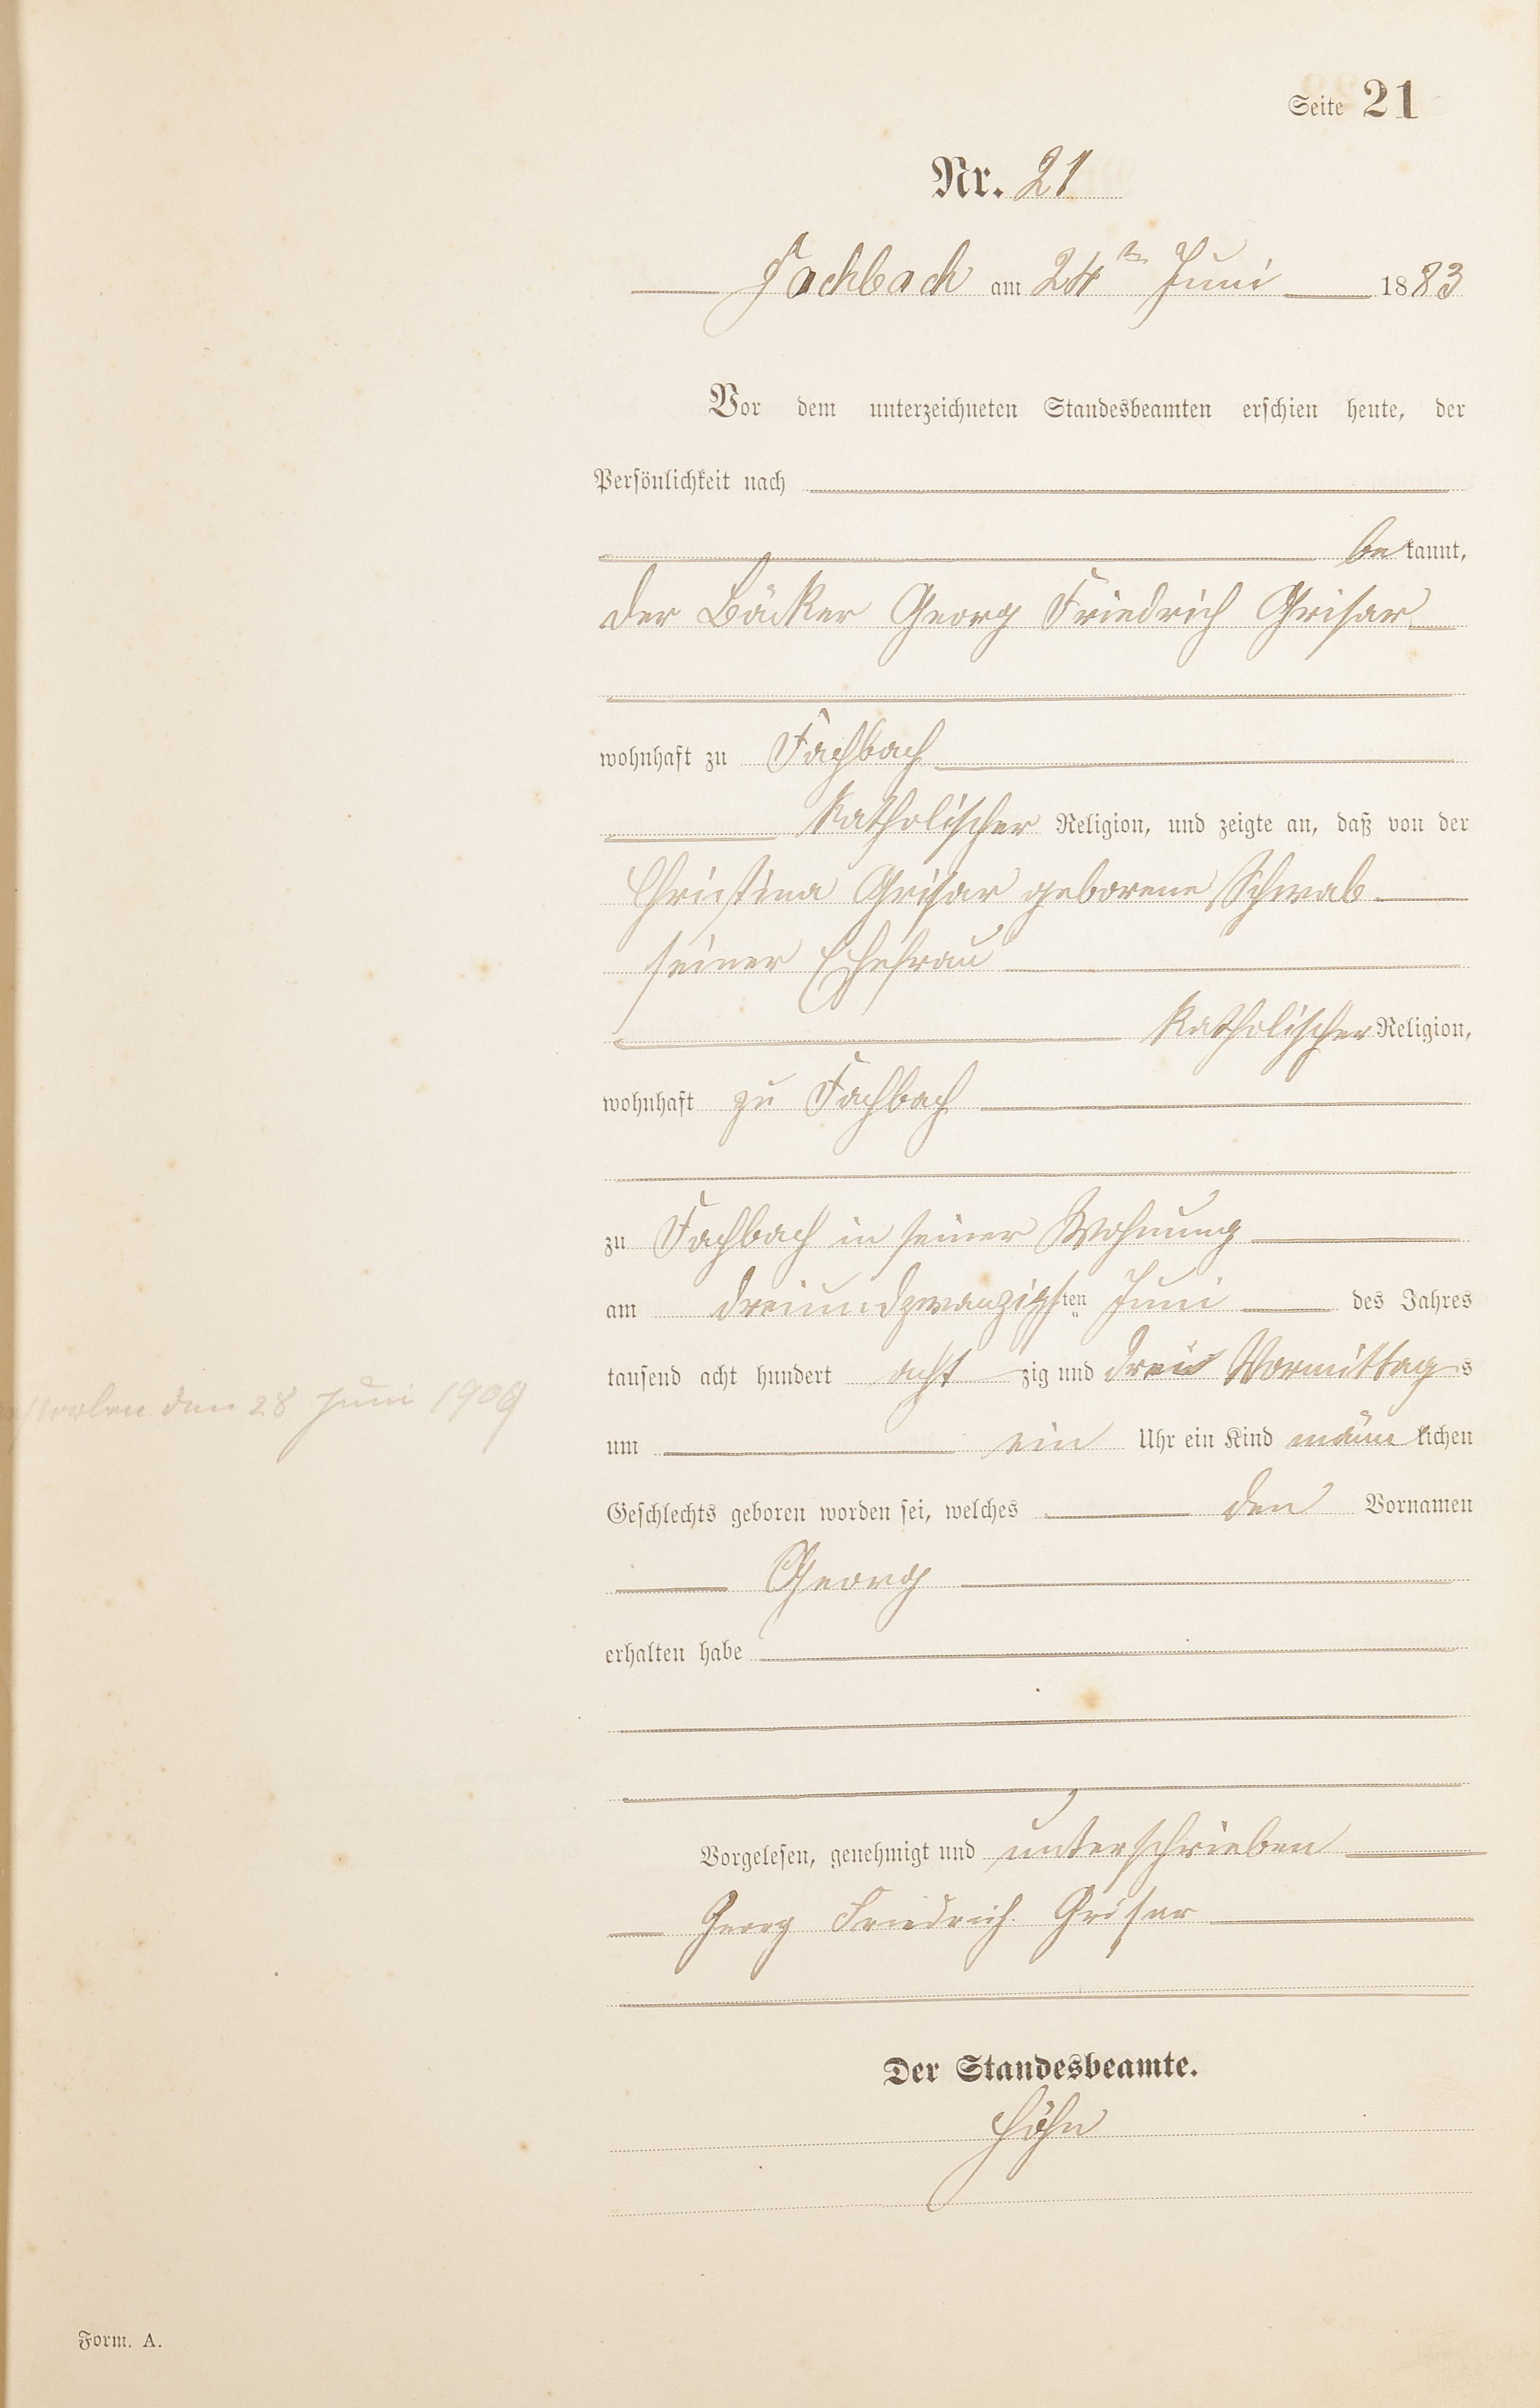 Seite 21
Nr. 21
Fachbach am 24ten Juni 1883
Vor dem unterzeichneten Standesbeamten erschien heute, der
Persönlichkeit nach
bekannt,
der Bäcker Georg Friedrich Grisar
wohnhaft zu Fachbach
katholischer Religion, und zeigte an, daß von der
Christina Grisar geborene Schwab
seiner Ehefrau
katholischer Religion,
wohnhaft zu Fachbach
zu Fachbach in seiner Wohnung
am dreiundzwanzigsten Juni des Jahres
tausend acht hundert achtzig und drei Vormittags
um ein Uhr ein Kind männlichen
gestorben den 28 Juni 1909
Geschlechts geboren worden sei, welches den Vornamen
Georg
erhalten habe
Vorgelesen, genehmigt und unterschrieben
Georg Friedrich Grisar
Der Standesbeamte.
Höhn
Form. A.